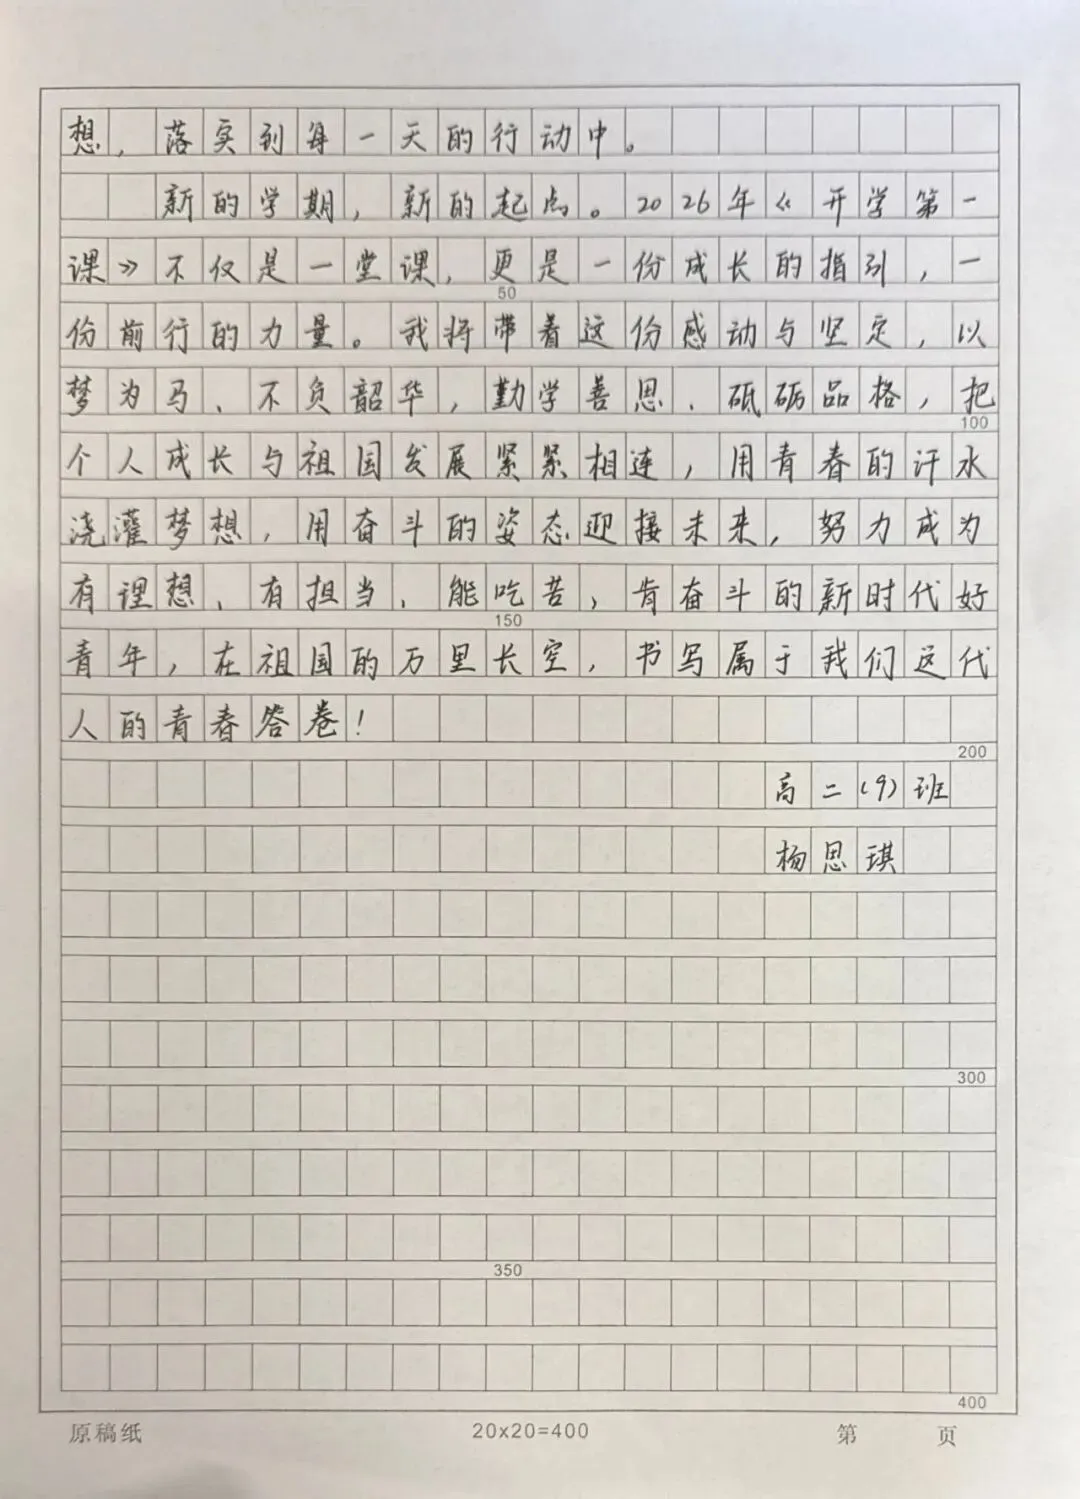 想，落实到每一天的行动中。
新的学期，新的起点。2026年《开学第一
课》不仅是一堂课，更是一份成长的指引，一
50
份前行的力量。我将带着这份感动与坚定，以
梦为马、不负韶华，勤学善思、砥砺品格，把
100
个人成长与祖国发展紧紧相连，用青春的汗水
浇灌梦想，用奋斗的姿态迎接未来，努力成为
有理想、有担当、能吃苦、肯奋斗的新时代好
150
青年，在祖国的万里长空，书写属于我们这代
人的青春答卷！
200
高二(9)班
杨思琪
300
350
400
原稿纸 20x20=400 第 页